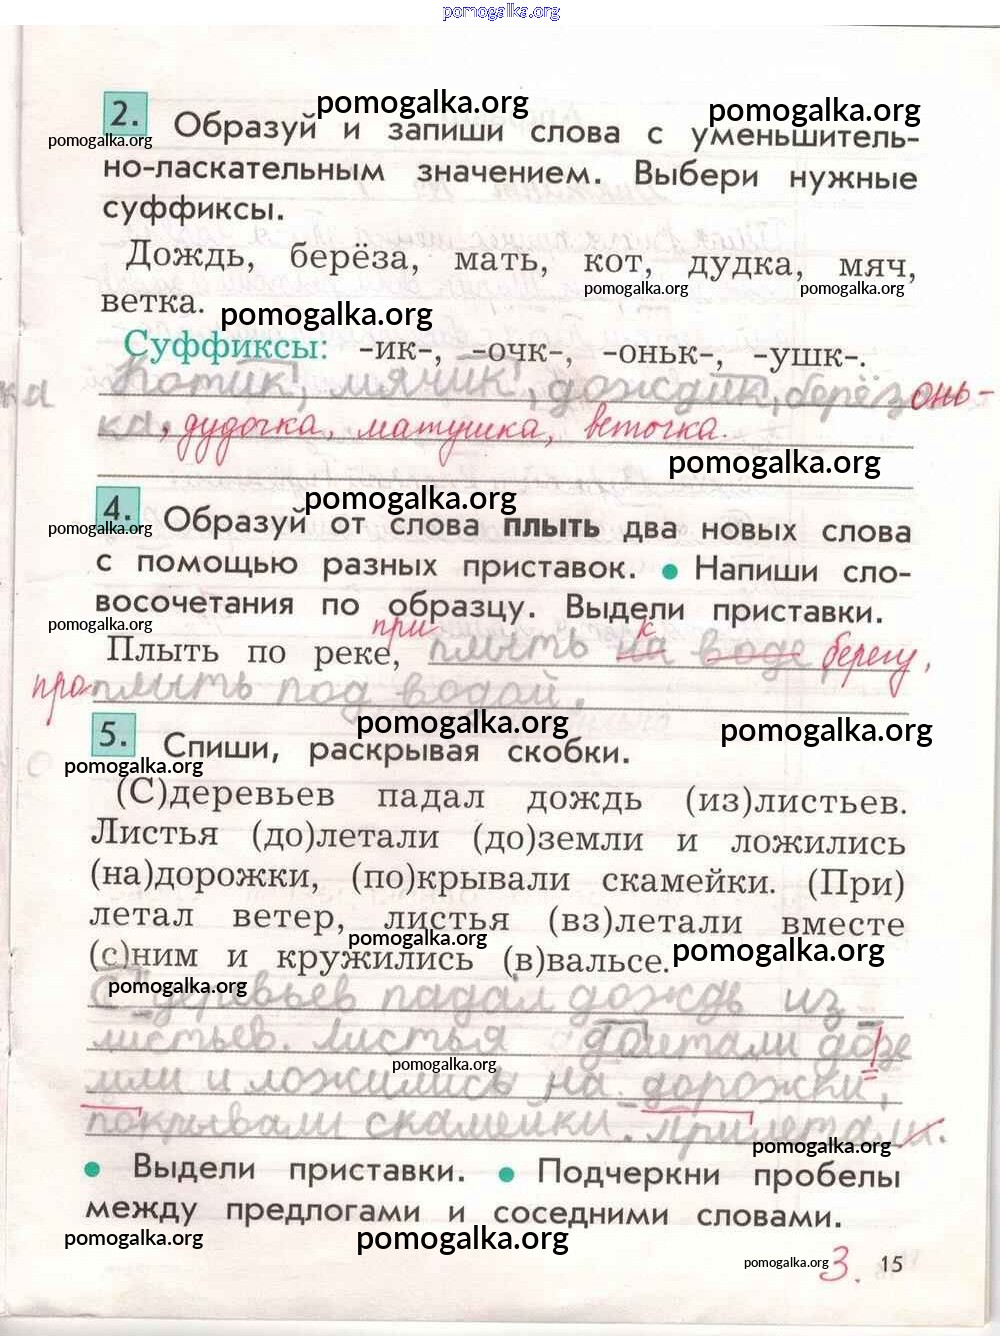 pomogalka.org
2. Образуй и запиши слова с уменьшитель-
pomogalka.org pomogalka.org
pomogalka.org
но-ласкательным значением. Выбери нужные
суффиксы.
Дождь, берёза, мать, кот, дудка, мяч,
pomogalka.org pomogalka.org
ветка.
pomogalka.org
Суффиксы: -ик-, -очк-, -оньк-, -ушк-.
ка Котик, мячик, дождик, берёз онь-
ка, дудочка, матушка, веточка.
pomogalka.org
4. Образуй от слова плыть два новых слова
pomogalka.org
pomogalka.org
с помощью разных приставок. • Напиши сло-
восочетания по образцу. Выдели приставки.
pomogalka.org
при к
Плыть по реке, плыть на воде берегу,
проплыть под водой.
5. Спиши, раскрывая скобки.
pomogalka.org pomogalka.org
pomogalka.org
(С)деревьев падал дождь (из)листьев.
Листья (до)летали (до)земли и ложились
(на)дорожки, (по)крывали скамейки. (При)
летал ветер, листья (вз)летали вместе
pomogalka.org pomogalka.org
(с)ним и кружились (в)вальсе.
pomogalka.org
С деревьев падал дождь из
листьев. Листья долетали дозе
pomogalka.org
мли и ложились на дорожки,
покрывали скамейки. Прилетали.
pomogalka.org
• Выдели приставки. • Подчеркни пробелы
между предлогами и соседними словами.
pomogalka.org pomogalka.org
pomogalka.org 3. 15